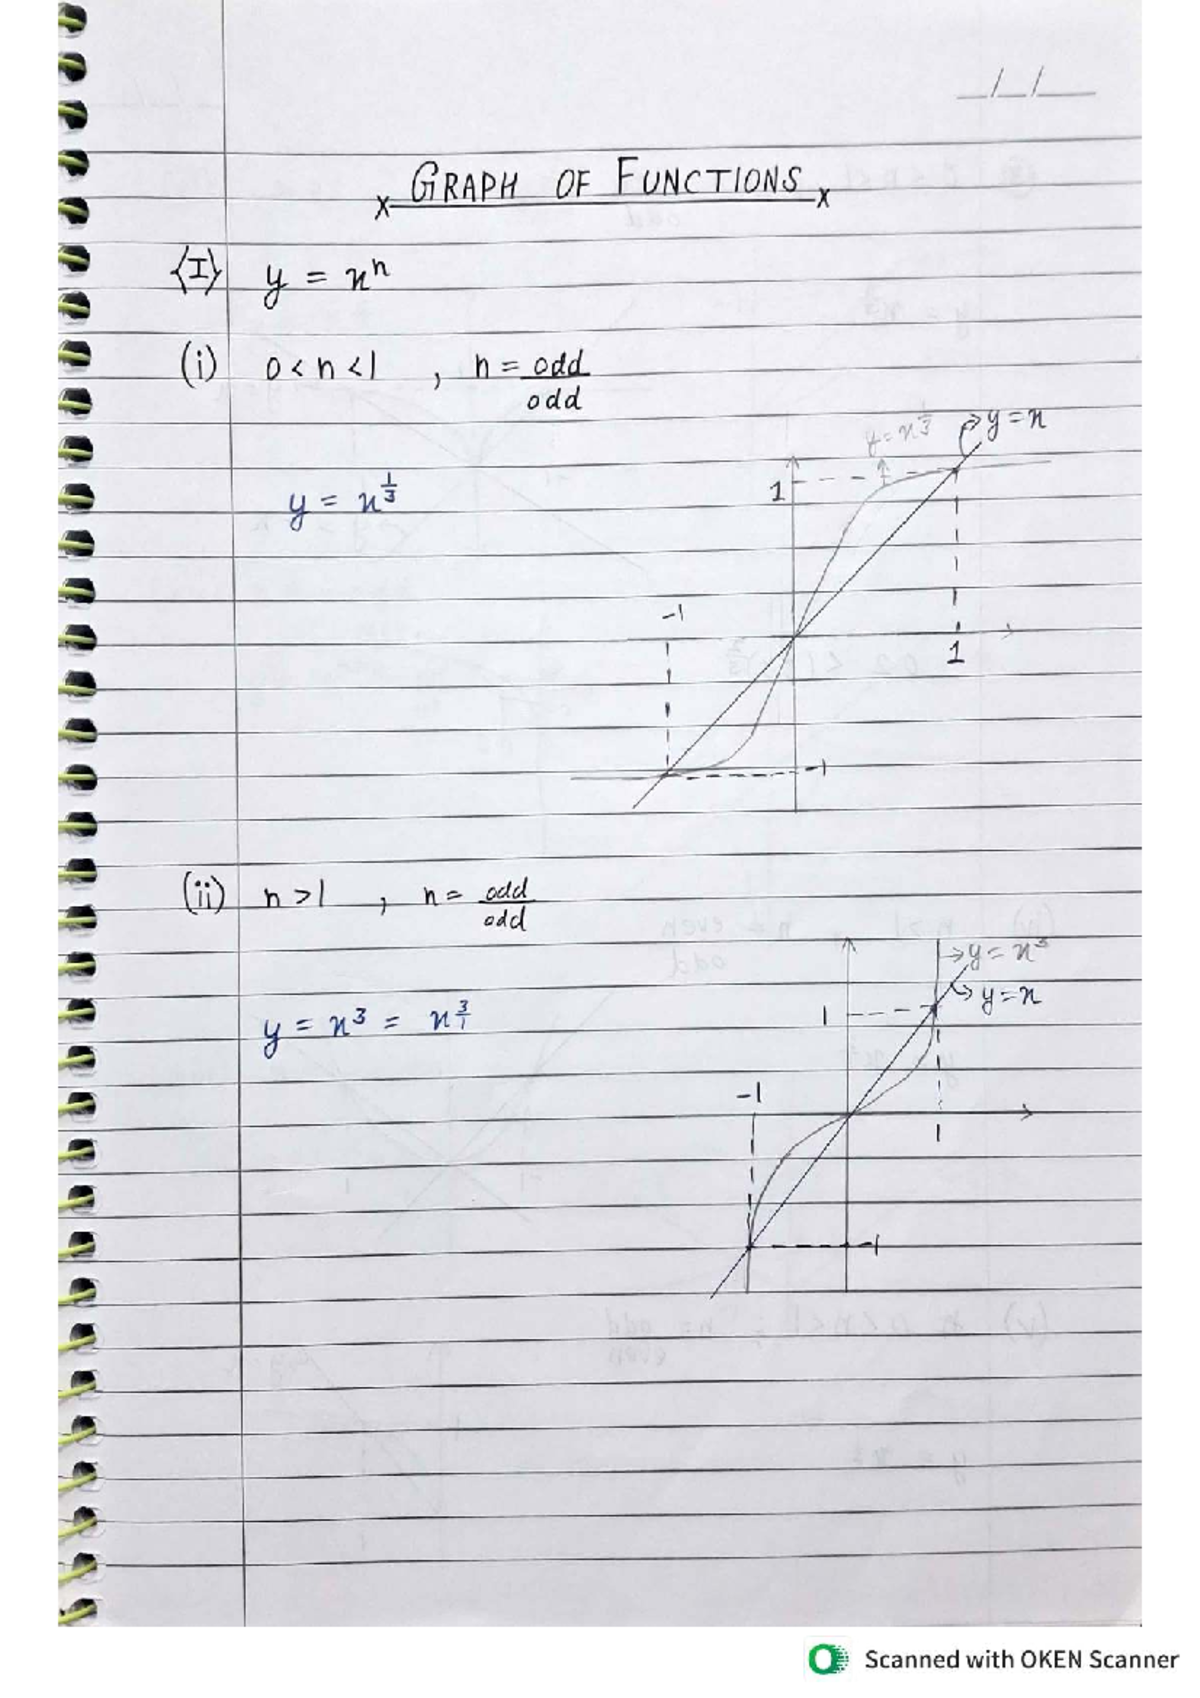 _/_/__
x GRAPH OF FUNCTIONS x
⟨I⟩ y = xⁿ
(i) 0 < n < 1 , n = odd/odd
y = x^(1/3)
y = x^(1/3)
y = x
1
-1
1
-1
(ii) n > 1 , n = odd/odd
y = x³ = x^(3/1)
y = x³
y = x
1
-1
1
-1
Scanned with OKEN Scanner